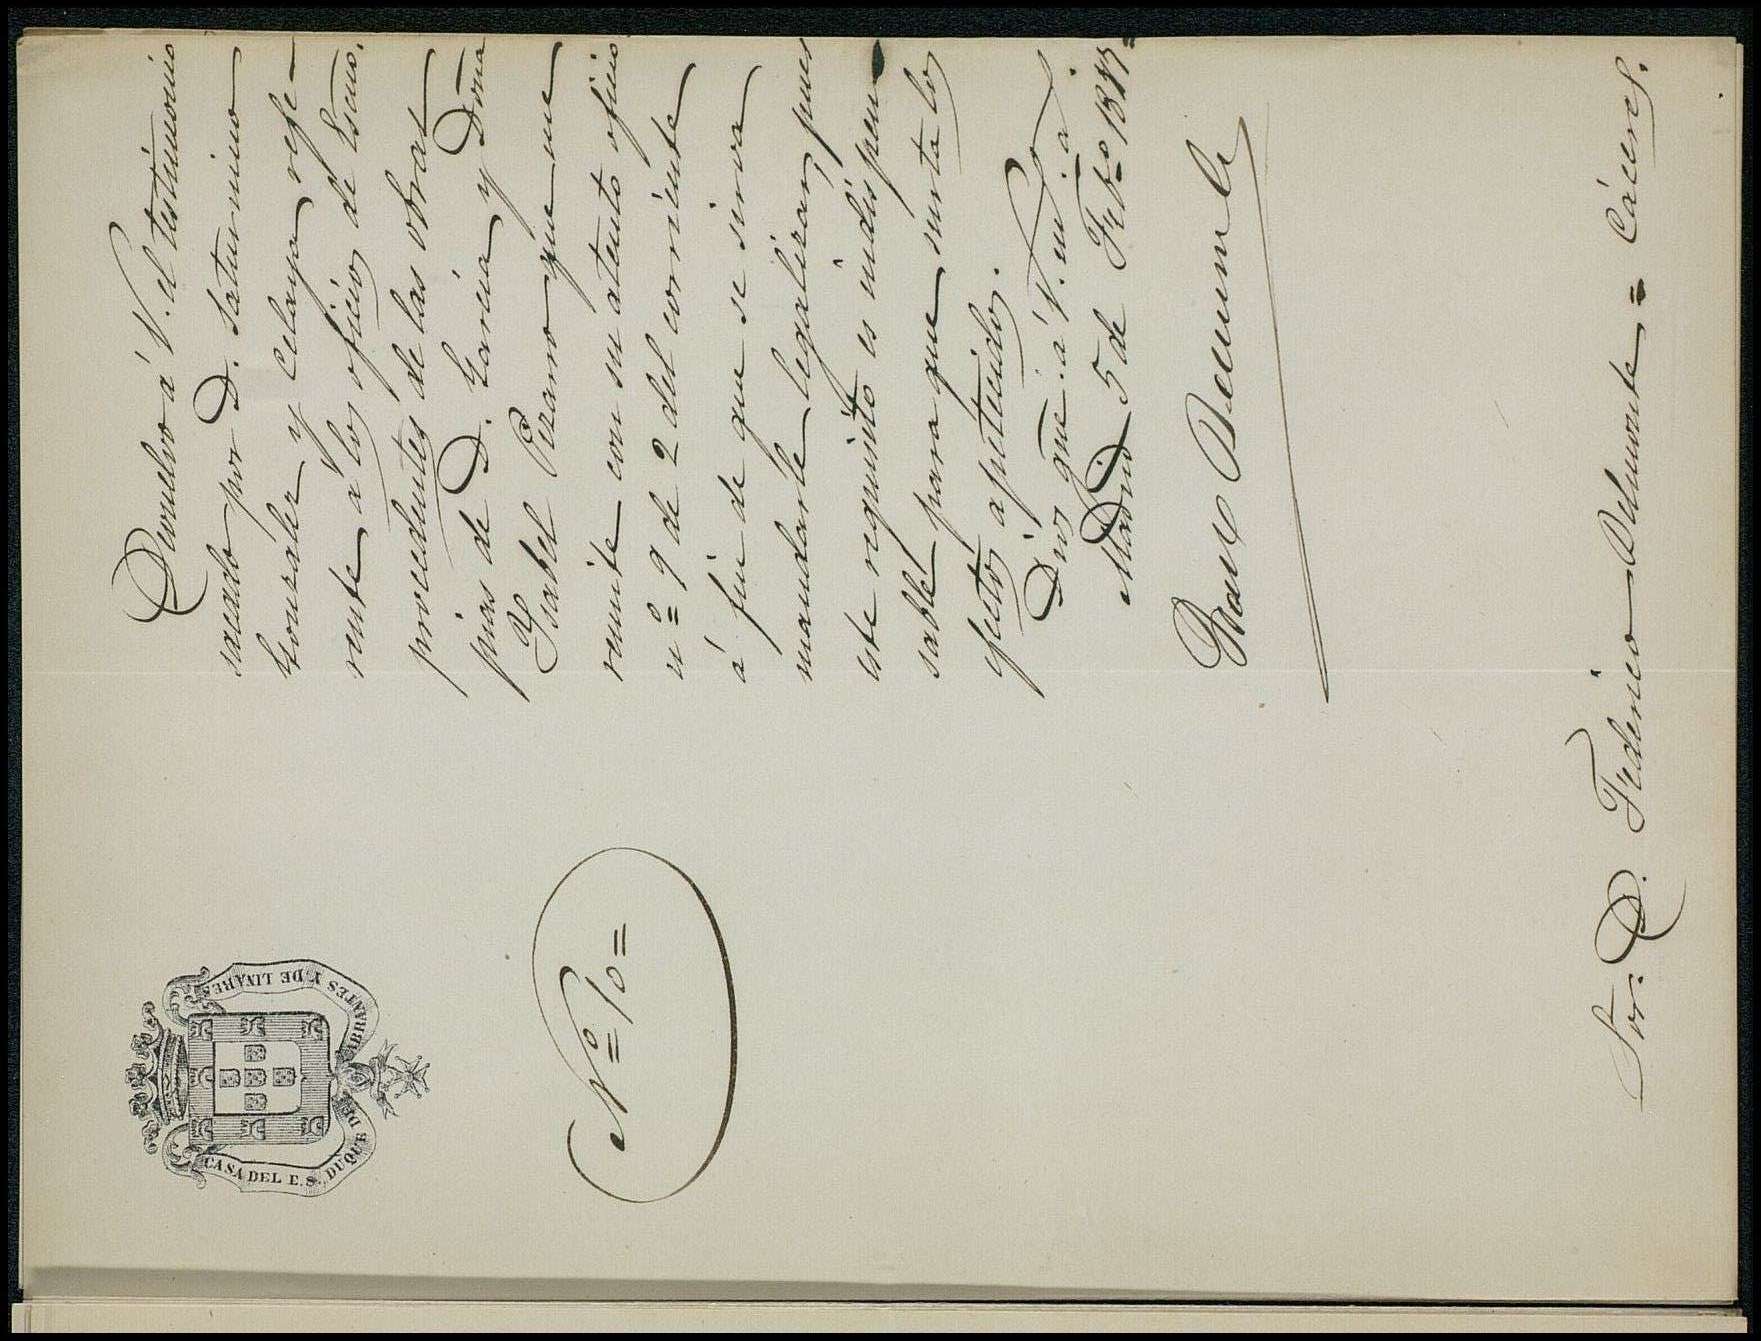 CASA DEL E.S. DUQUE DE ABRANTES Y DE LINARES
Nº=10=
Devuelvo á V. el testimonio
sacado por D. Saturnino
Gonzalez y Celaya refe-
rente á los oficios de Escno.
procedentes de las obras
pias de D. García y Doña
Ysabel Pizarro que me
remite con su atento oficio
nº= 9 de 2 del corriente
á fin de que se sirva
mandarle legalizar, pues
este requisito es indispen-
sable para que surta los
efectos apetecidos.
Dios gue. á V. m. a.
Madrid 5 de Febº
Sor. D. Federico Belmonte = Cáceres.